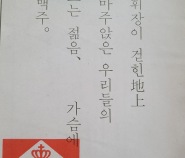 휘장이 걷힌 地上
마주앉은 우리들의
는 젊음, 가슴에
맥주.